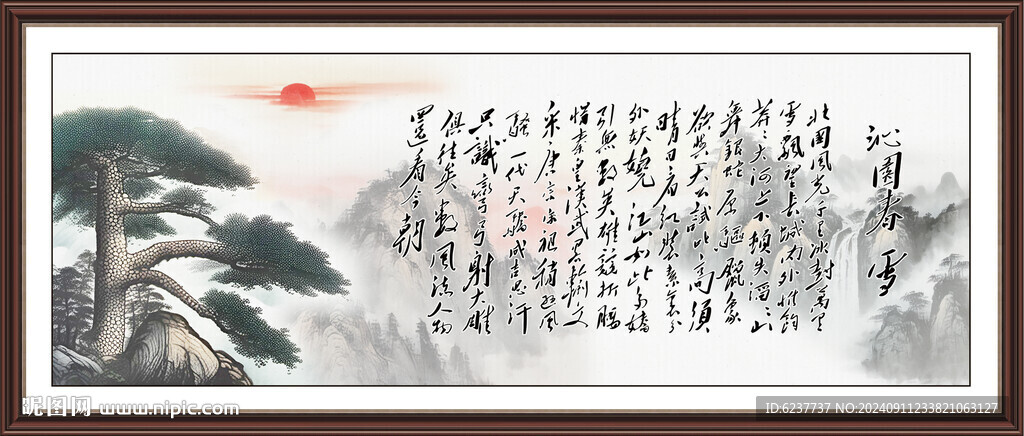 沁園春 雪
北國風光千里冰封萬里
雪飄望長城內外惟餘
莽〻大河上下頓失滔〻山
舞銀蛇原驅臘象
欲與天公試比高須
晴日看紅裝素裹分
外妖嬈江山如此多嬌
引無數英雄競折腰
惜秦皇漢武略輸文
采唐宗宋祖稍遜風
騷一代天驕成吉思汗
只識彎弓射大雕
俱往矣數風流人物
還看今朝
昵图网 www.nipic.com
ID:6237737 NO:20240911233821063127